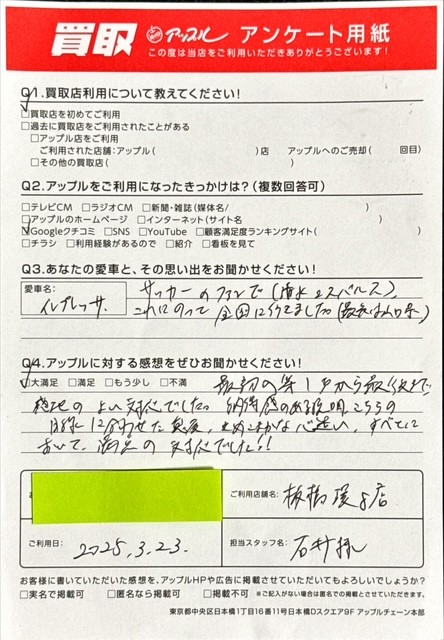 買取 アップル アンケート用紙
この度は当店をご利用いただきありがとうございます!
Q1.買取店利用について教えてください!
☑買取店を初めてご利用
□過去に買取店をご利用されたことがある
□アップル店をご利用
ご利用された店舗:アップル( )店 アップルへのご売却( 回目)
□その他の買取店( )
Q2.アップルをご利用になったきっかけは?(複数回答可)
□テレビCM □ラジオCM □新聞・雑誌(媒体名/ )
□アップルのホームページ □インターネット(サイト名/ )
☑Googleクチコミ □SNS □YouTube □顧客満足度ランキングサイト( )
□チラシ □利用経験があるので □紹介 □看板を見て
Q3.あなたの愛車と、その思い出をお聞かせください!
愛車名:
インプレッサ
サッカーのファンで(清水エスパルス)、
これにのって全国に行てました(最長は山口県)
Q4.アップルに対する感想をぜひお聞かせください!
☑大満足 □満足 □もう少し □不満
最初の第1声から最後まで
心地のよい対応でした。納得感のある説明、こちらの
目線に合わせた態度、きめこまかな心遣い、すべてに
おいて、満足の対応でした!!
ご利用店舗名:
板橋環8店
ご利用日:
2025.3.23.
担当スタッフ名:
石井様
お客様に書いていただいた感想を、アップルHPや広告に掲載させていただいてもよろしいでしょうか?
□実名で掲載可 □匿名なら掲載可 □掲載不可 ※ご記入がない場合は匿名での掲載とさせていただきます。
東京都中央区日本橋1丁目16番11号日本橋Dスクエア9F アップルチェーン本部